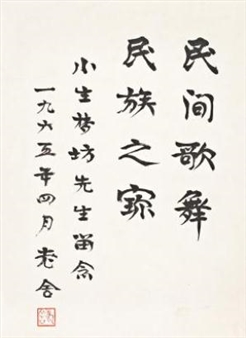 民间歌舞
民族之寶
小生梦坊先生留念
一九六五年四月老舍